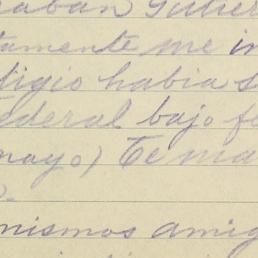 raban Gutier
tamente me in
digio habia s
Federal bajo fe
mayo) Te ma
mismos amig